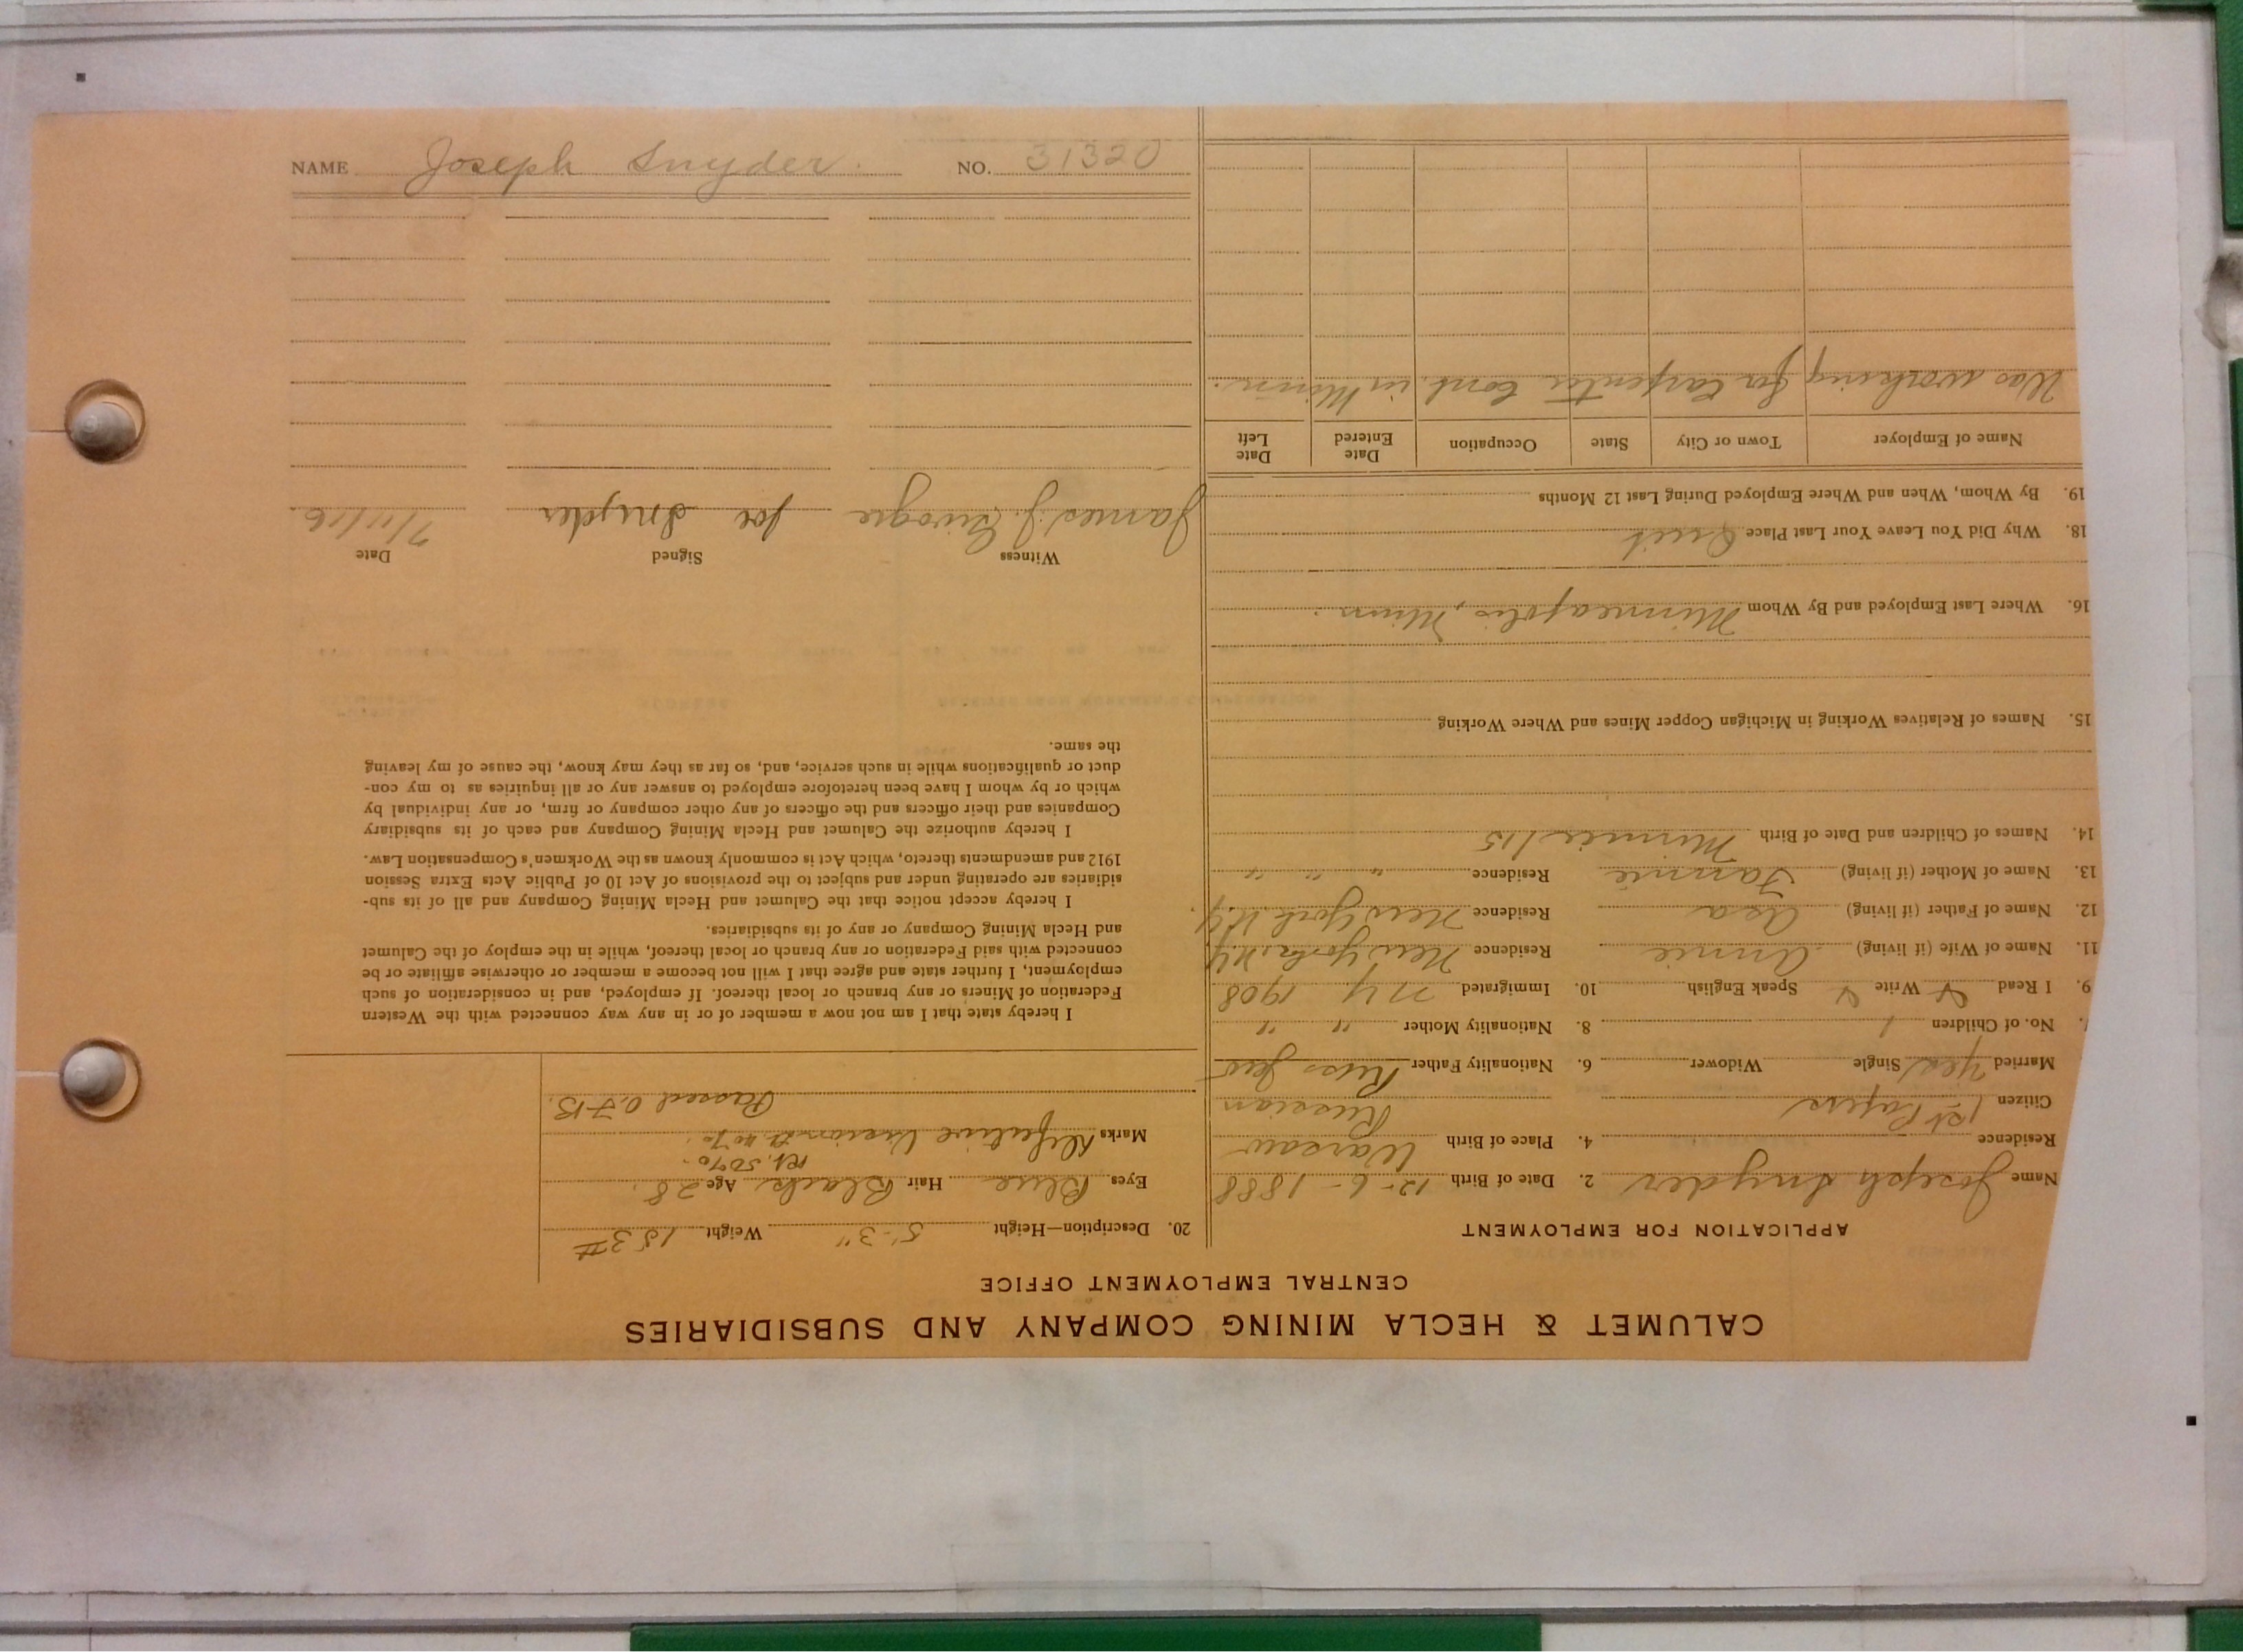 CALUMET & HECLA MINING COMPANY AND SUBSIDIARIES
CENTRAL EMPLOYMENT OFFICE
APPLICATION FOR EMPLOYMENT
Name Joseph Snyder 2. Date of Birth 12-6-1888
Residence 4. Place of Birth Warsaw
Russian
Citizen 1st Papers
Married Yes Single Widower 6. Nationality Father Russ Jew
7. No. of Children 1 8. Nationality Mother " "
9. I Read & Write & Speak English 10. Immigrated NY 1908
11. Name of Wife (if living) Annie Residence New York, N.Y.
12. Name of Father (if living) Asa Residence New York N.Y.
13. Name of Mother (if living) Fannie Residence " " "
14. Names of Children and Date of Birth Minnie 1/15
15. Names of Relatives Working in Michigan Copper Mines and Where Working
16. Where Last Employed and By Whom Minneapolis, Minn.
18. Why Did You Leave Your Last Place Quit
19. By Whom, When and Where Employed During Last 12 Months
Name of Employer Town or City State Occupation Date Entered Date Left
Was working for Carpenter Cont. in Minn.
20. Description—Height 5'-3" Weight 153#
Eyes Blue Hair Black Age 28
Rt. 50%
Marks Defective Vision 40%
Passed O.F.B.
I hereby state that I am not now a member of or in any way connected with the Western
Federation of Miners or any branch or local thereof. If employed, and in consideration of such
employment, I further state and agree that I will not become a member or otherwise affiliate or be
connected with said Federation or any branch or local thereof, while in the employ of the Calumet
and Hecla Mining Company or any of its subsidiaries.
I hereby accept notice that the Calumet and Hecla Mining Company and all of its sub-
sidiaries are operating under and subject to the provisions of Act 10 of Public Acts Extra Session
1912 and amendments thereto, which Act is commonly known as the Workmen's Compensation Law.
I hereby authorize the Calumet and Hecla Mining Company and each of its subsidiary
Companies and their officers and the officers of any other company or firm, or any individual by
which or by whom I have been heretofore employed to answer any or all inquiries as to my con-
duct or qualifications while in such service, and, so far as they may know, the cause of my leaving
the same.
Witness Signed Date
James J. Joe Snyder 7/11/16
NAME Joseph Snyder. NO. 31320